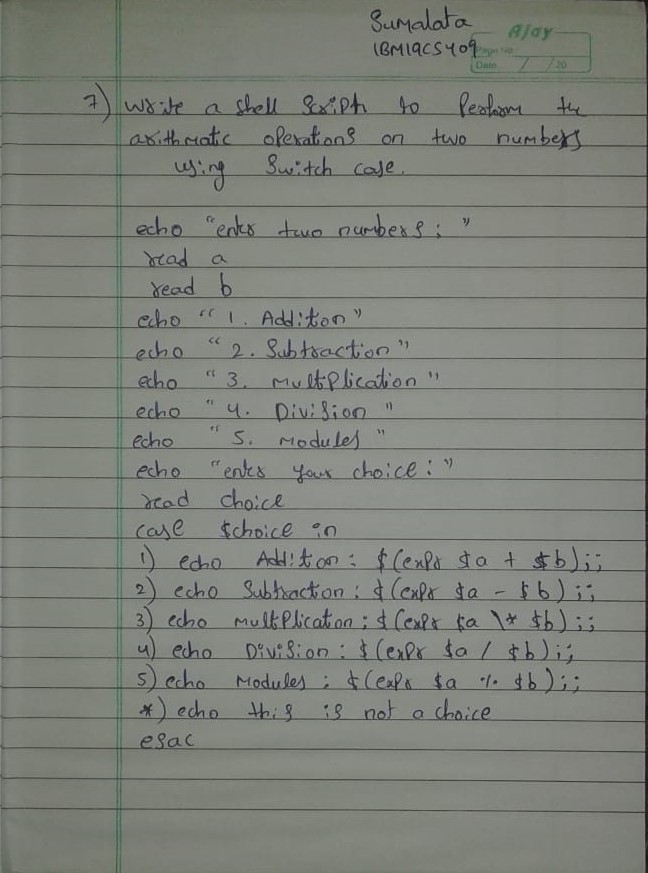 Sumalata
1BM19CS409
Ajay
Page No
Date / /20
7) Write a shell Script to Perform the
arithmatic operations on two numbers
using Switch case.
echo "enter two numbers: "
read a
read b
echo " 1. Addition"
echo " 2. Subtraction"
echo " 3. MultiPlication"
echo " 4. Division "
echo " 5. Modules "
echo "enter your choice: "
read choice
case $choice in
1) echo Addition: $(expr $a + $b);;
2) echo Subtraction: $(expr $a - $b);;
3) echo MultiPlication: $(expr $a \* $b);;
4) echo Division: $(expr $a / $b);;
5) echo Modules: $(expr $a % $b);;
*) echo this is not a choice
esac